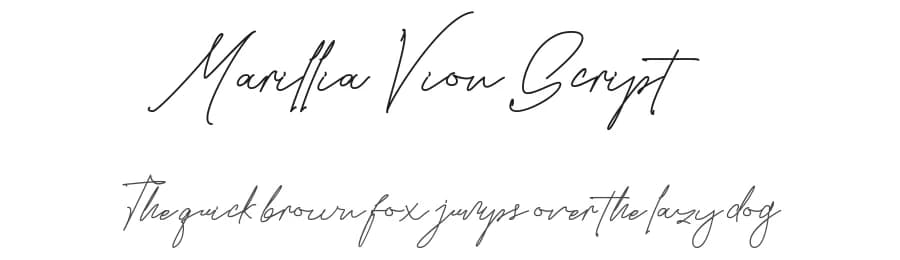 Marillia Vion Script
The quick brown fox jumps over the lazy dog